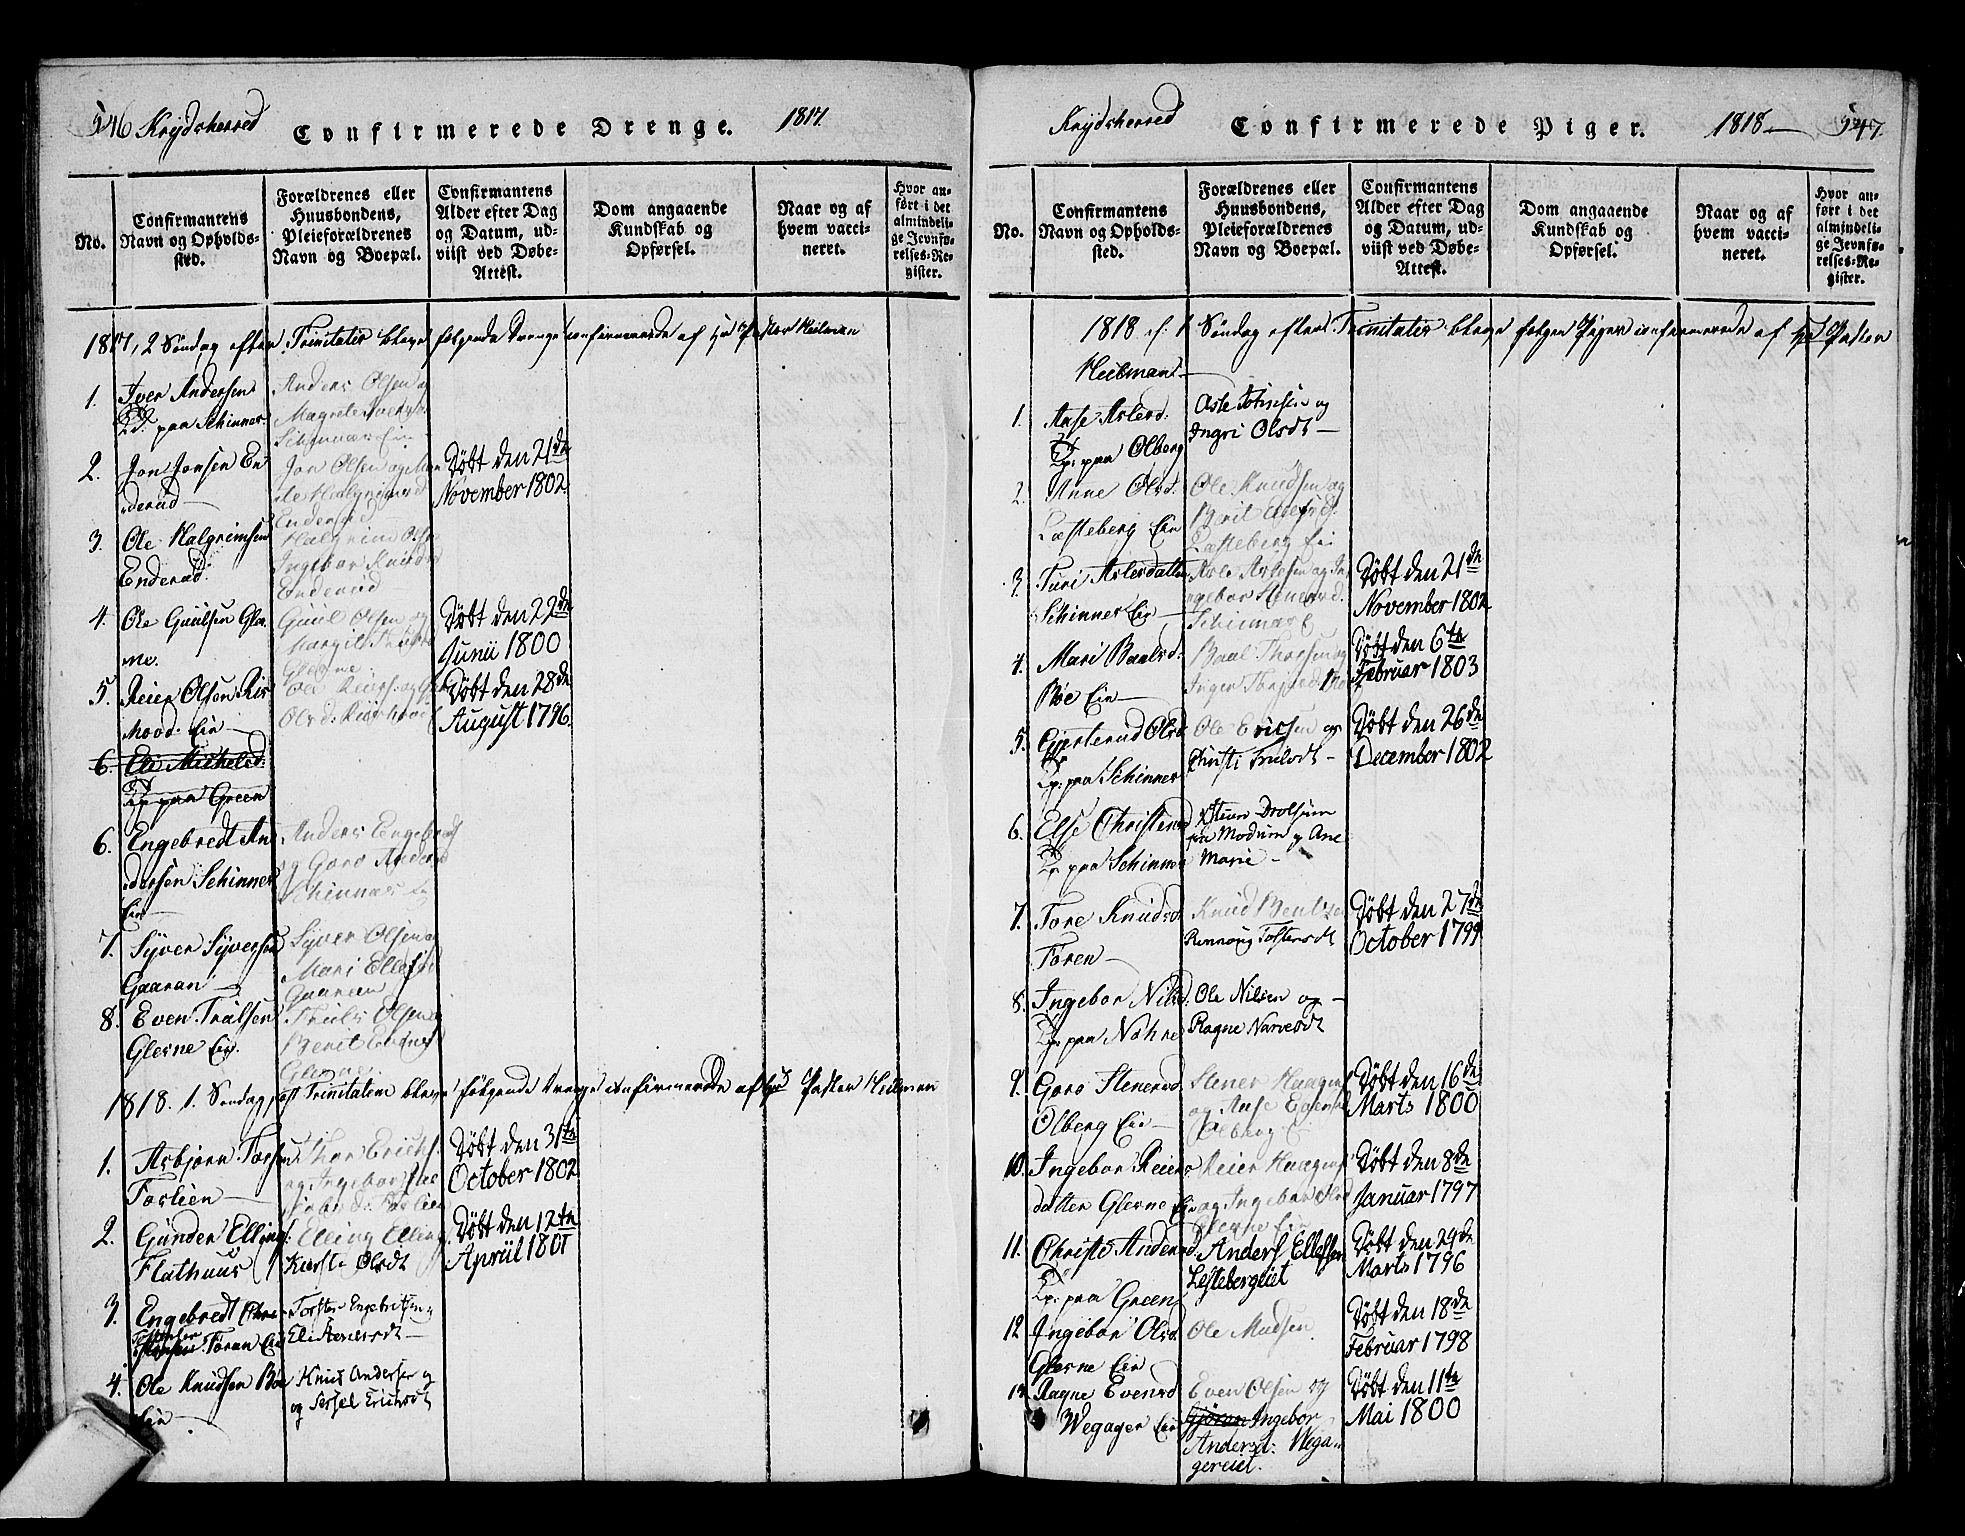 546 Krydsherred Confirmerede Drenge. 1817.
No.
Confirmantens
Navn og Opholds-
sted.
Forældrenes eller
Huusbondens,
Pleieforældrenes
Navn og Boepæl.
Confirmantens
Alder efter Dag
og Datum, ud-
viist ved Døbe-
Attest.
Dom angaaende
Kundskab og
Opførsel.
Naar og af
hvem vacci-
neret.
Hvor an-
ført i det
almindeli-
ge Jevnfø-
relses-Re-
gister.
1817, 2 Søndag efter Trinitatis bleve følgende Drenge confirmerede af Hr Pastor Heilman
1. Iver Andersen
paa Schinnes
Anders Olsen og
Schinnes Eie
2. Jon Jonsen En
derud
Jon Olsen og
Halgrimsd
Enderud
Døbt den 21de
November 1802
3. Ole Halgrimsen
Enderud.
Halgrim Olsen
Ingebor Knudsd
Enderud
4. Ole Guulsen Gles
ne.
Guul Olsen og
Margit
Glesne
Døbt den 22de
Junii 1800
5. Reier Olsen Ris
Mood: Eie
Ole Reiers. og
Olsd:
Døbt den 28de
August 1796
6. Eli Mickelsd:
paa Green
6. Engebredt An
dersen Schinnes
Eie
Anders Engebreds
og Goro Andersd
Schinnes
7. Syver Syversen
Gaaran
Syver Olsen og
Mari Ellefsd
Gaaraen
8. Even Trulsen
Glesne Eie.
Truls Olsen og
Berit Evensd
Glesne
1818. 1. Søndag post Trinitatem bleve følgende Drenge confirmerede af Hr Pastor Heilman
1. Asbjørn Torsen
Toslien
Thor Erichs.
og Ingebor
Toslien
Døbt den 31te
October 1802
2. Gunder Ellings:
Flathuus
Elling Elling
Kirsti Olsdt
Døbt den 12te
Apriil 1801
3. Engebredt
Torstensen Toran Eie
Torsten Engebritsen
Eli Stenersdt
4. Ole Knudsen Bøe
Eie
Knud Andersen og
og Sersel Erichsdt
Krydsherred Confirmerede Piger. 1818 547
No.
Confirmantens
Navn og Opholds-
sted.
Forældrenes eller
Huusbondens,
Pleieforældrenes
Navn og Boepæl.
Confirmantens
Alder efter Dag
og Datum, ud-
viist ved Døbe-
Attest.
Dom angaaende
Kundskab og
Opførsel.
Naar og af
hvem vacci-
neret.
Hvor an-
ført i det
almindeli-
ge Jevnfø-
relses-Re-
gister.
1818 d: 1 Søndag efter Trinitatis bleve følgen Piger confirmerede af Hr Pastor
Heilman
1. Aase Aslesd:
paa Olberg
Asle Tostensen og
Ingri Olsdt
2. Anne Olsd:
Læsteberg Eie
Ole Knudsen og
Berit
Læsteberg Eie
3. Turi Aslesdatter
Schinnes Eie
Asle Aslesen og In
gebor Stenersd.
Schinnes E
Døbt den 21de
November 1802
4. Mari Baalsd:
Bøe Eie
Baal Thorsen og
Inger
Døbt den 6te
Februar 1803
5. Gjertrud Olsd
paa Schinnes
Ole Ericsen og
Christi Trulsdt
Døbt den 26de
December 1802
6. Else Christensd
paa Schinnes
Drolsum
fra Modum og Ane
Marie
7. Tore Knudsd
Toren
Knud Bentsen
Rennaug Tostensdt
Døbt den 27de
October 1799
8. Ingebor Nilsd:
paa Nøhre
Ole Nilsen og
Ragne Narvesdt
9. Goro Stenersd
Olberg Eie
Stener Haagens
og Aase
Olberg E
Døbt den 16de
Marts 1800
10. Ingebor Reiers
datter Glesne Eie
Reier Haagens
og Ingebor Olsd
Glesne Eie
Døbt den 8de
Januar 1797
11. Christi Andersd
paa Green
Anders Ellefsen
Lestebergeiet
Døbt den 29de
Marts 1796
12 Ingebor Olsd
Glesne Eie
Ole Madsen
Døbt den 18de
Februar 1798
13 Ragne Evensd
Wegager Eie
Even Olsen og
Gjøran Ingebor
Andersd: Wega
gereiet.
Døbt den 11te
Mai 1800